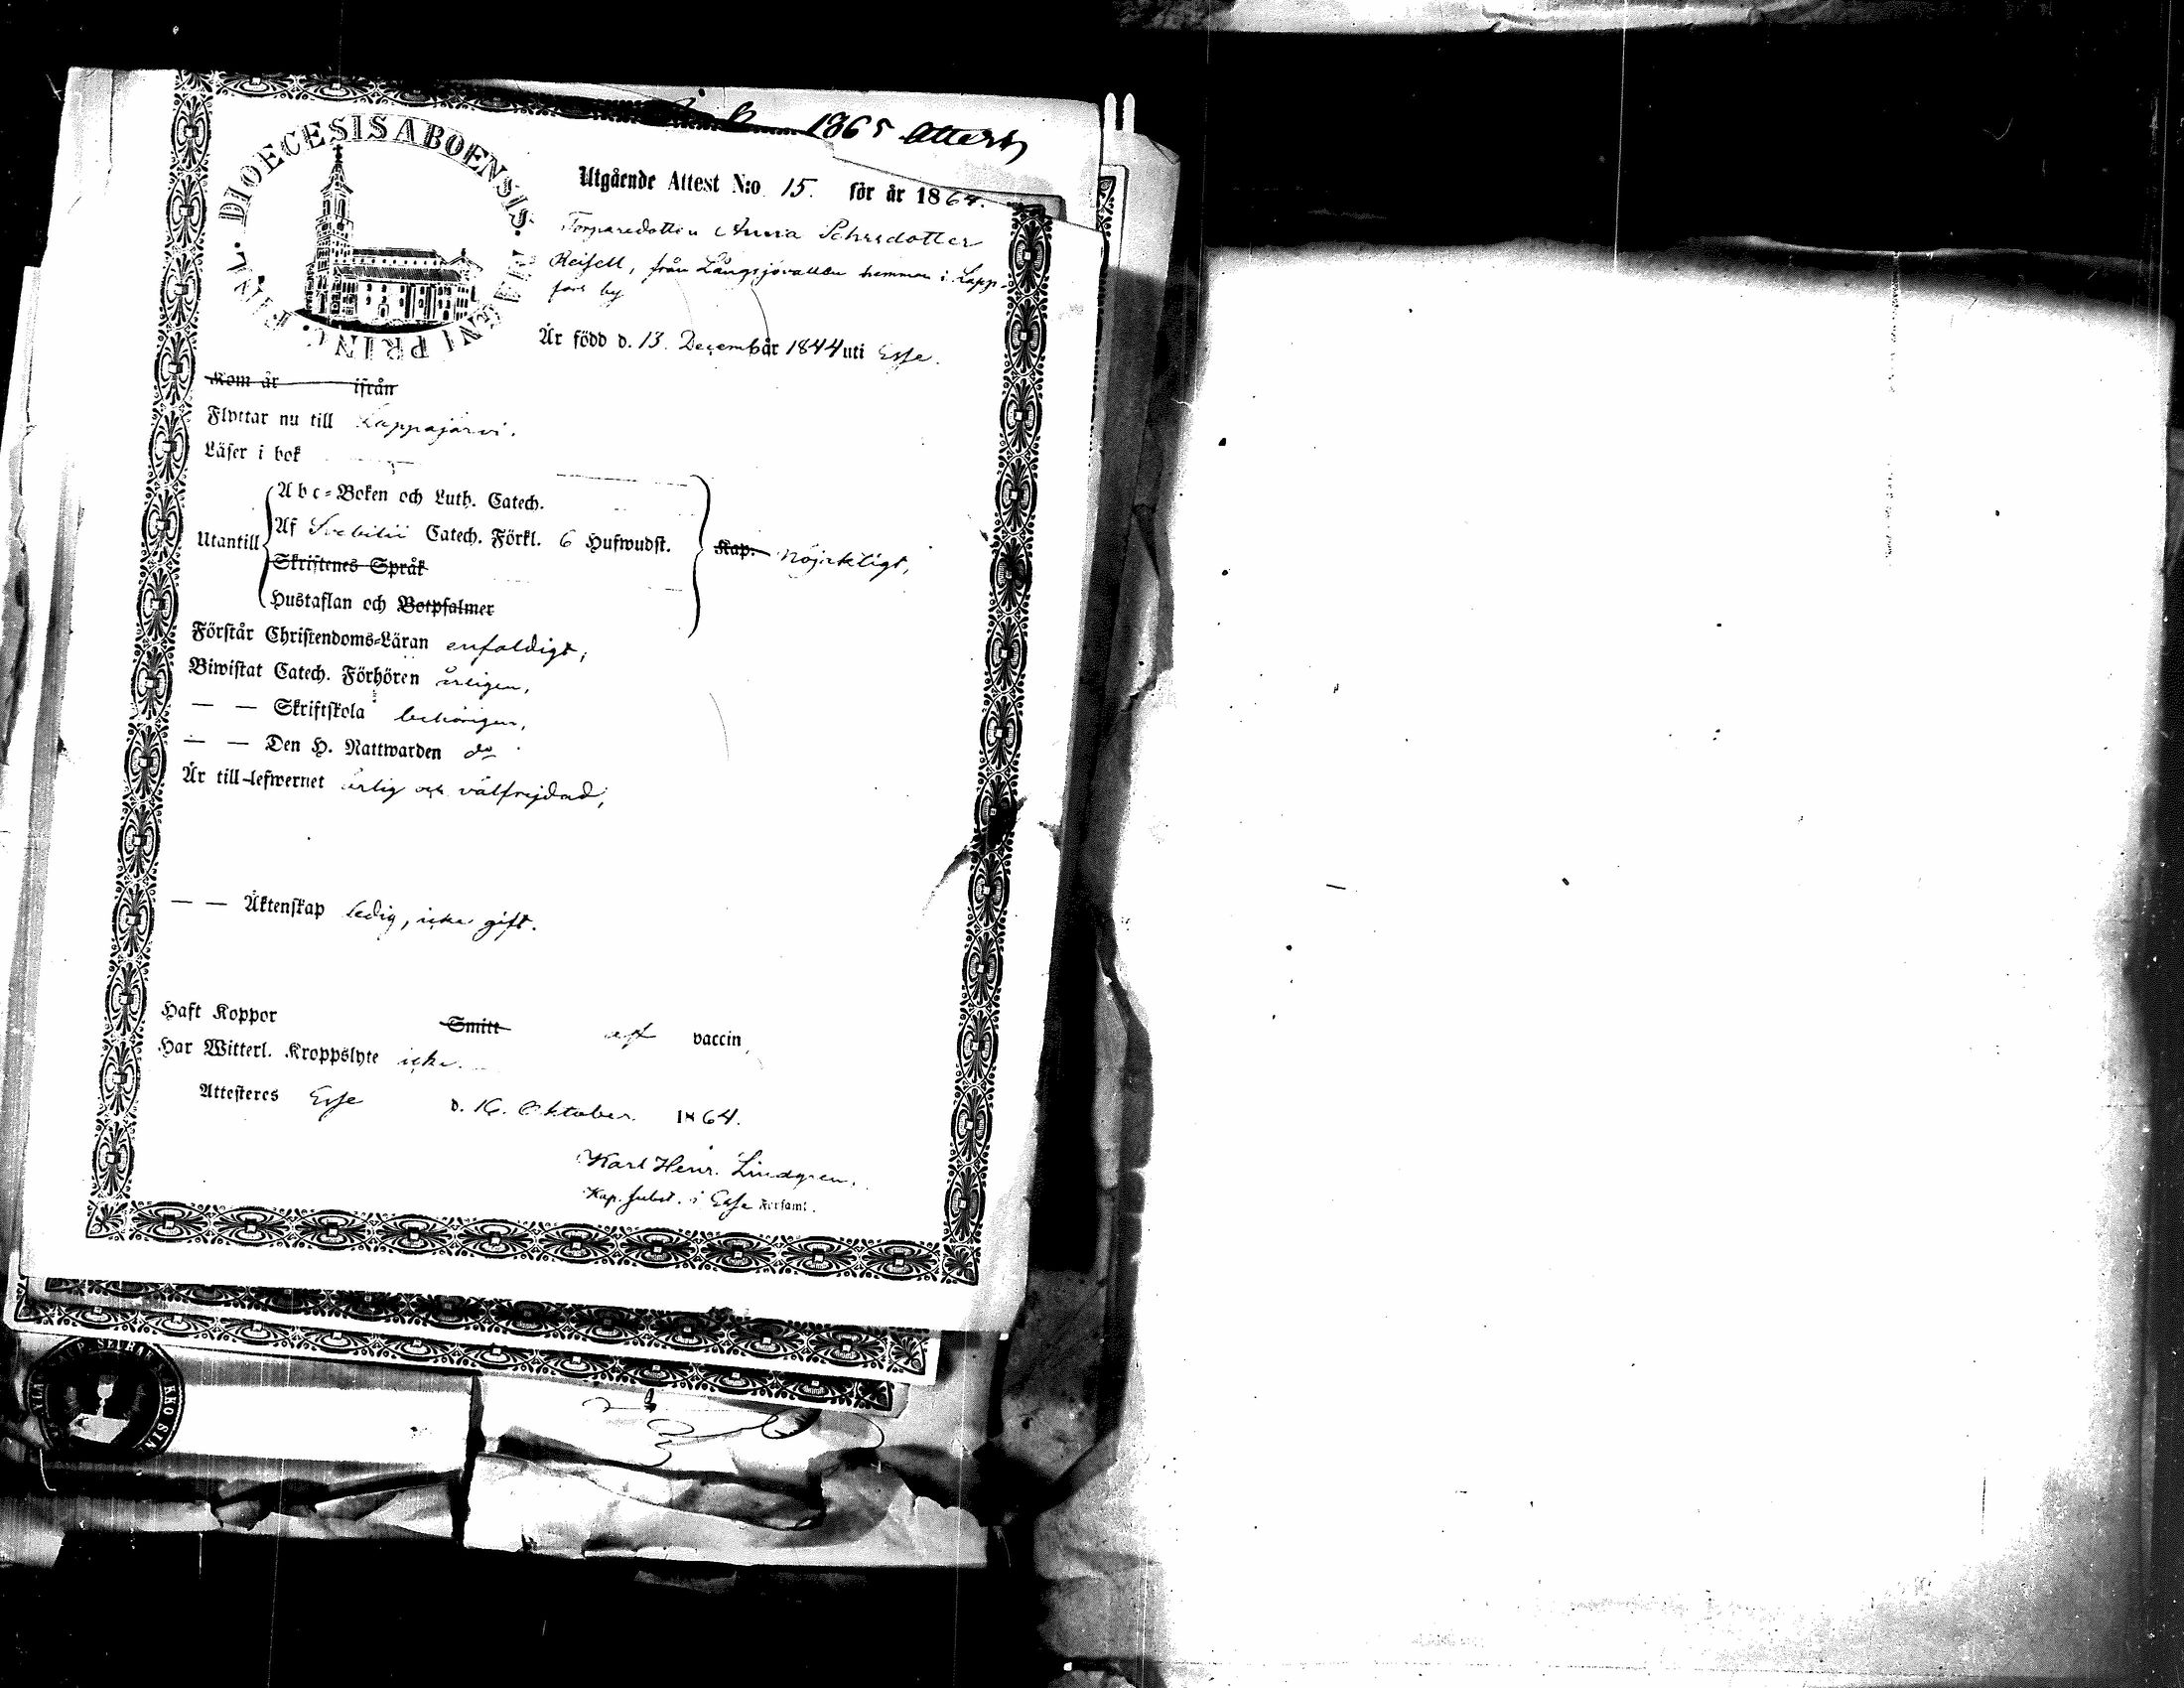 1865 Attest
DIOECESIS ABOENSIS.
Utgående Attest N:o 15. för år 1864.
Torparedottren Anna Johrsdotter
Reisell, från Långsjövallen hemman i Lapp-
fors by
Är född d. 13 Decemb år 1844 uti Esse.
Kom år ifrån
Flyttar nu till Lappajärvi.
Läser i bok
Abc-Boken och Luth. Catech.
Utantill Af Svebilii Catech. Förkl. 6 Hufwudst. Kap. nöjaktligt,
Skriftenes Språk
Hustaflan och Botpsalmer
Förstår Christendoms-Läran enfaldigt,
Biwistat Catech. Förhören årligen,
— — Skriftskola behörigen,
— — Den H. Nattwarden do
Är till lefwernet ärlig och välfrejdad,
— — Äktenskap ledig, icke gift.
Haft Koppor Smitt af vaccin,
Har Witterl. Kroppslyte icke.
Attesteres Esse d. 16. Oktober. 1864.
Karl Henr. Lindgren.
Kap. subst. i Esse Församl.